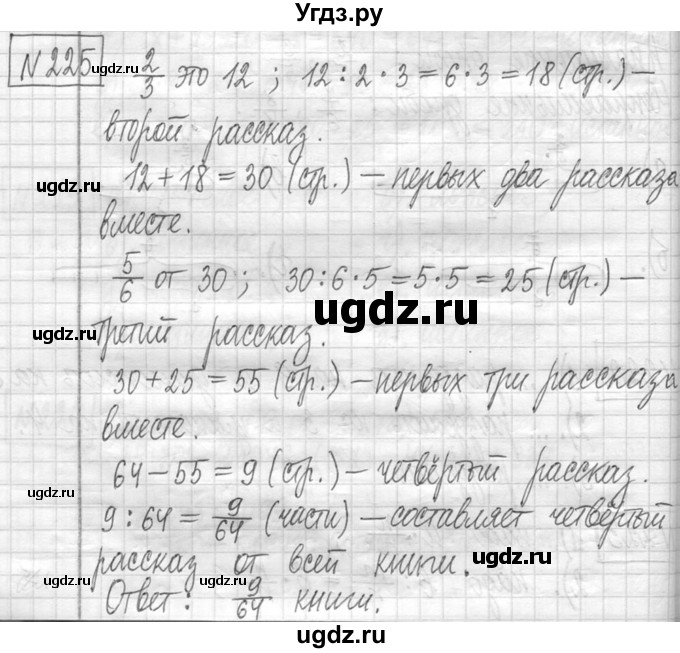 Угдз.ру
№225. 2/3 это 12 ; 12 : 2 · 3 = 6 · 3 = 18 (стр.) –
второй рассказ.
12 + 18 = 30 (стр.) – первых два рассказа
вместе.
5/6 от 30 ; 30 : 6 · 5 = 5 · 5 = 25 (стр.) –
третий рассказ.
30 + 25 = 55 (стр.) – первых три рассказа
вместе.
64 – 55 = 9 (стр.) – четвёртый рассказ.
9 : 64 = 9/64 (части) – составляет четвёртый
рассказ от всей книги.
Ответ: 9/64 книги.
ugdz.ru
ugdz.ru
ugdz.ru
ugdz.ru
ugdz.ru
ugdz.ru
ugdz.ru
ugdz.ru
ugdz.ru
ugdz.ru